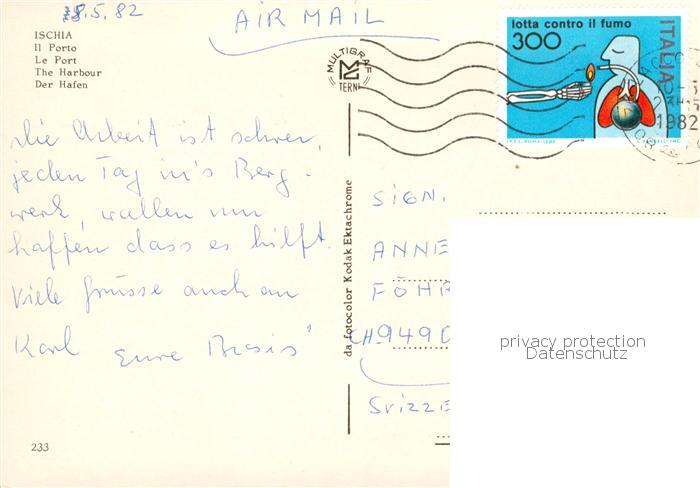 28.5.82
AIR MAIL
ISCHIA
Il Porto
Le Port
The Harbour
Der Hafen
MULTIGRAF
TERNI
lotta contro il fumo
300
ITALIA
1982
Die Arbeit ist schwer,
jeden Tag in's Berg-
werk, wollen nur
hoffen dass es hilft.
Viele Grüsse auch an
Karl Eure
da fotocolor Kodak Ektachrome
SIGN.
ANNE
FÖHR
CH 9490
Svizze
privacy protection
Datenschutz
233